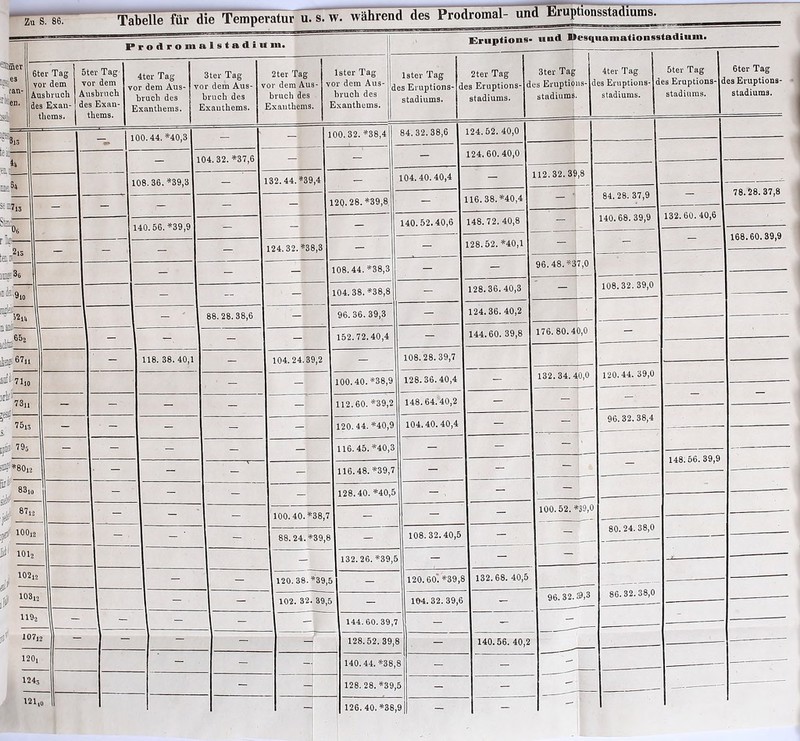 Zu S. 86. Tabelle für die Temperatur u. s. w. während des Prodromal- und Eruptionsstadiums.
Prodromalstadium. Eruptions- und Desquamationsstadium.
6ter Tag vor dem Ausbruch des Exanthems. 5ter Tag vor dem Ausbruch des Exanthems. 4ter Tag vor dem Ausbruch des Exanthems. 3ter Tag vor dem Ausbruch des Exanthems. 2ter Tag vor dem Ausbruch des Exanthems. 1ster Tag vor dem Ausbruch des Exanthems. 1ster Tag des Eruptions-stadiums. 2ter Tag des Eruptions-stadiums. 3ter Tag des Eruptions-stadiums. 4ter Tag des Eruptions-stadiums. 5ter Tag des Eruptions-stadiums. 6ter Tag des Eruptions-stadiums.
— 100.44. *40,3 — — 100.32. *38,4 84.32.38,6 124.52. 40,0
— 104.32. *37,6 — — — 124.60. 40,0
108.36. *39,3 — 132.44. *39,4 — 104.40.40,4 — 112.32.39,8
— — — — — 120.28. *39,8 — 116.38. *40,4 — 84.28. 37,9 — 78.28. 37,8
140.56. *39,9 — — — 140.52.40,6 148.72. 40,8 — 140.68. 39,9 132.60. 40,6
— — — — 124.32. *38,3 — — 128.52. *40,1 — — — 168.60.39,9
— — — 108.44. *38,3 — — 96.48. *37,0
— — 104.38. *38,8 — 128.36. 40,3 — 108.32. 39,0
— 88.28.38,6 — 96.36. 39,3 — 124.36. 40,2
652 — — — — 152.72.40,4 — 144.60. 39,8 176.80.40,0 —
6711 — 118. 38. 40,1 — 104.24.39,2 — 108.28.39,7
7110 — — 100.40. *38,9 128.36.40,4 — 132.34. 40,0 120.44. 39,0
7311 — — — — — 112.60. *39,2 148.64. 40,2 — — — — —
7515 — — — — — 120.44. *40,9 104.40.40,4 — — 96.32. 38,4
795 — — — — 116.45. *40,3 — — —
*8012 — — — — 116.48. *39,7 — — — — 148.56. 39,9
8310 — — — — 128.40. *40,5 — — —
8712 — — — 100.40. *38,7 — — — 100.52. *39,0
10012 — — — 88.24. *39,8 — 108.32.40,5 — — 80.24.38,0
1012 — 132.26. *39,5 — — —
10212 — — 120.38. *39,5 — 120.60. *39,8 132.68. 40,5
10312 — — 102. 32. 39,5 — 104.32.39,6 — 96.32.39,3 86.32.38,0
1192 — — — — — 144.60. 39,7 — —
10712 — — — — — 128.52. 39,8 — 140.56. 40,2 —
1201 — — — 140.44. *38,8 — — —
1245 — — 128.28. *39,5 — — —
12110 — 126.40. *38,9 — — —